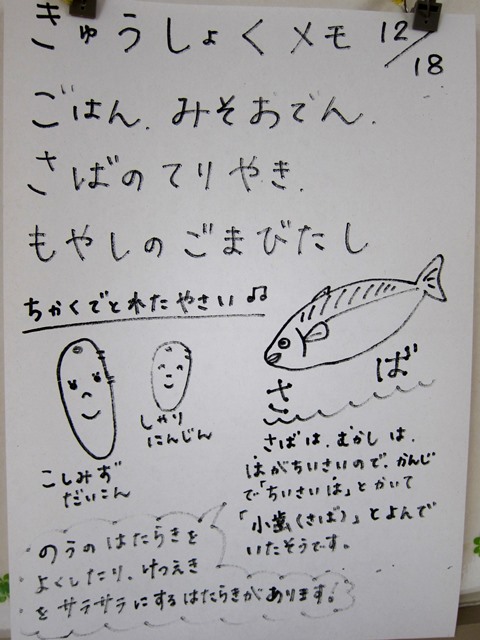 きゅうしょくメモ 12/18
ごはん．みそおでん．
さばのてりやき．
もやしのごまびたし
ちかくでとれたやさい♫
こしみず
だいこん
しゃり
にんじん
さば
さばは．むかしは．
はがちいさいので．かんじ
で「ちいさいは」とかいて
「小歯(さば)」とよんで
いたそうです。
のうのはたらきを
よくしたり．けつえき
をサラサラにするはたらきがあります!